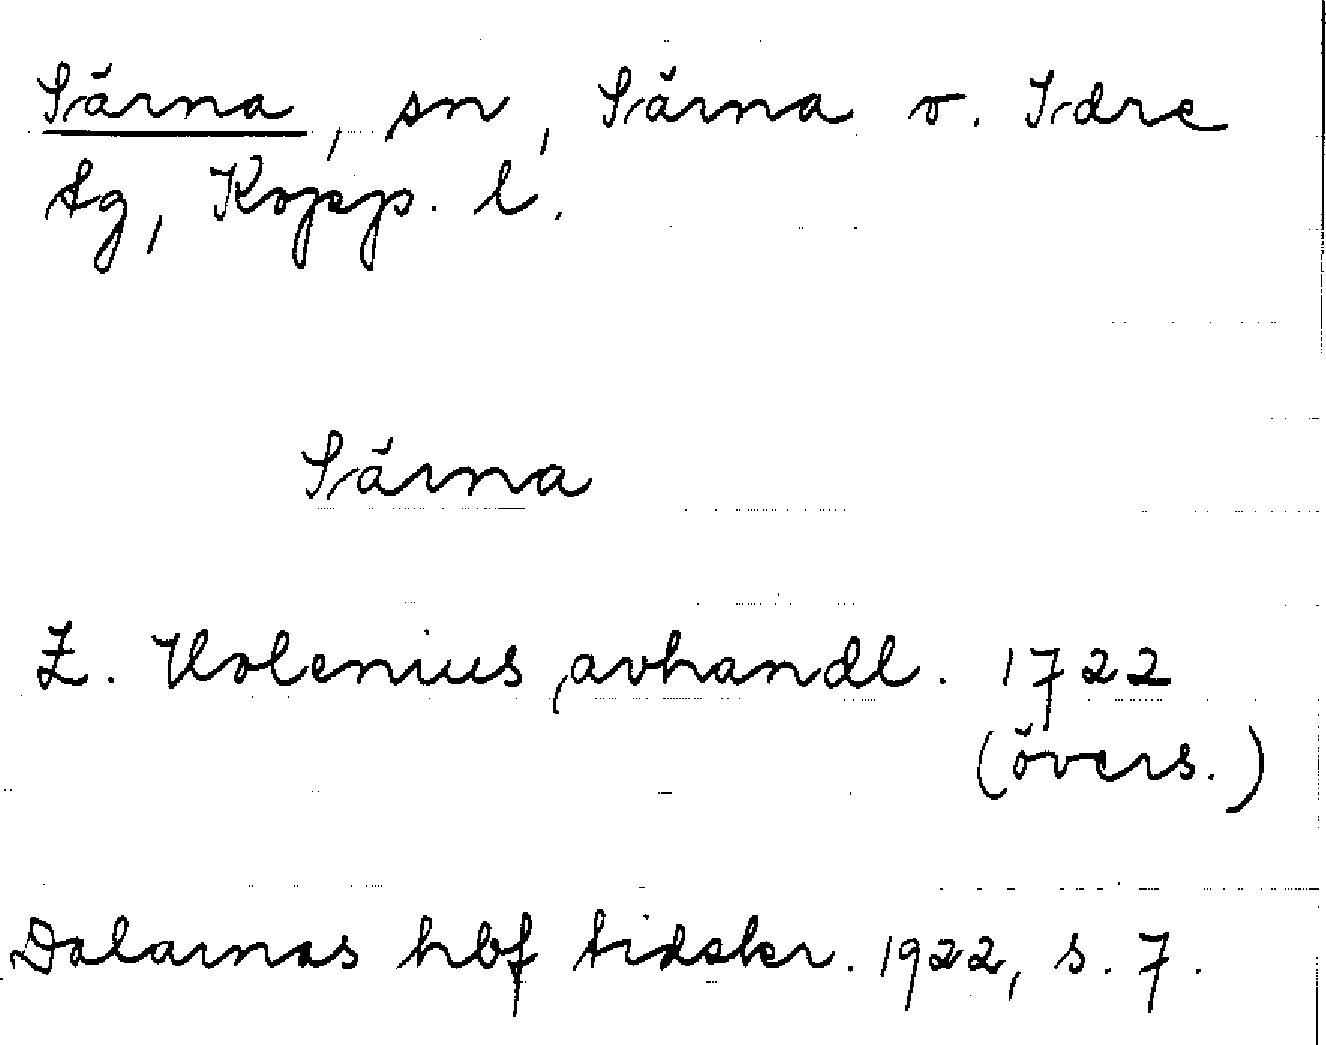 Särna, sn, Särna o. Idre
tg, Kopp. l.
Särna
Z. Holenius, avhandl. 1722
(övers.)
Dalarnas hbf tidskr. 1922, s. 7.